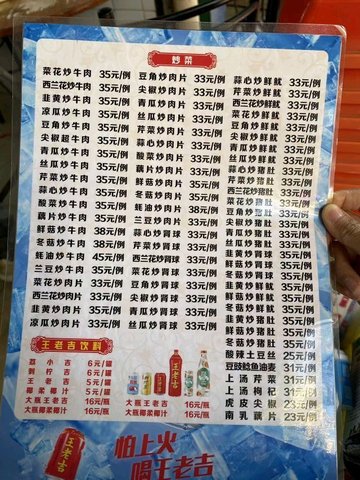 炒菜
菜花炒牛肉 35元/例
西兰花炒牛肉 35元/例
韭黄炒牛肉 35元/例
凉瓜炒牛肉 35元/例
豆角炒牛肉 35元/例
尖椒超牛肉 35元/例
青瓜炒牛肉 35元/例
丝瓜炒牛肉 35元/例
芹菜炒牛肉 35元/例
蒜心炒牛肉 35元/例
酸菜炒牛肉 35元/例
藕片炒牛肉 35元/例
鲜菇炒牛肉 38元/例
冬菇炒牛肉 38元/例
蚝油炒牛肉 45元/例
兰豆炒牛肉 35元/例
菜花炒肉片 33元/例
西兰花炒肉片 33元/例
韭黄炒肉片 33元/例
凉瓜炒肉片 33元/例
豆角炒肉片 33元/例
尖椒炒肉片 33元/例
青瓜炒肉片 33元/例
丝瓜炒肉片 33元/例
芹菜炒肉片 33元/例
蒜心炒肉片 33元/例
酸菜炒肉片 33元/例
藕片炒肉片 33元/例
鲜菇炒肉片 35元/例
冬菇炒肉片 35元/例
蚝油炒肉片 38元/例
兰豆炒肉片 33元/例
蒜心炒肾球 33元/例
芹菜炒肾球 33元/例
西兰花炒肾球 33元/例
菜花炒肾球 33元/例
豆角炒肾球 33元/例
尖椒炒肾球 33元/例
青瓜炒肾球 33元/例
丝瓜炒肾球 33元/例
蒜心炒鲜鱿 33元/例
芹菜炒鲜鱿 33元/例
西兰花炒鲜鱿 33元/例
菜花炒鲜鱿 33元/例
豆角炒鲜鱿 33元/例
尖椒炒鲜鱿 33元/例
青瓜炒鲜鱿 33元/例
丝瓜炒鲜鱿 33元/例
蒜心炒猪肚 33元/例
芹菜炒猪肚 33元/例
西兰花炒猪肚 33元/例
菜花炒猪肚 33元/例
豆角炒猪肚 33元/例
尖椒炒猪肚 33元/例
青瓜炒猪肚 33元/例
丝瓜炒猪肚 33元/例
冬菇炒
上汤芹菜 31元/例
上汤枸杞 31元/例
虎皮尖椒 23元/例
南乳藕片 23元/例
酸辣土豆丝 25元/例
豆豉鲮鱼油麦 31元/例
王老吉饮料
荔小吉 6元/罐
刺柠吉 6元/罐
王老吉 5元/罐
椰柔椰汁 5元/罐
大瓶王老吉 16元/瓶
大瓶椰柔椰汁 16元/瓶
大瓶王老吉 16元/瓶
大瓶椰柔椰汁 16元/瓶
王老吉
王老吉
怕上火
喝王老吉